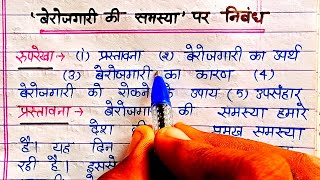 'बेरोजगारी की समस्या' पर निबंध
रुपरेखा → (1) प्रस्तावना (२) बेरोजगारी का अर्थ
(३) बेरोजगारी का कारण (4)
बेरोजगारी को रोकने के उपाय (5) उपसंहार
प्रस्तावना → बेरोजगारी की समस्या हमारे
देश की प्रमुख समस्या
है। यह दिन
रही है। इससे